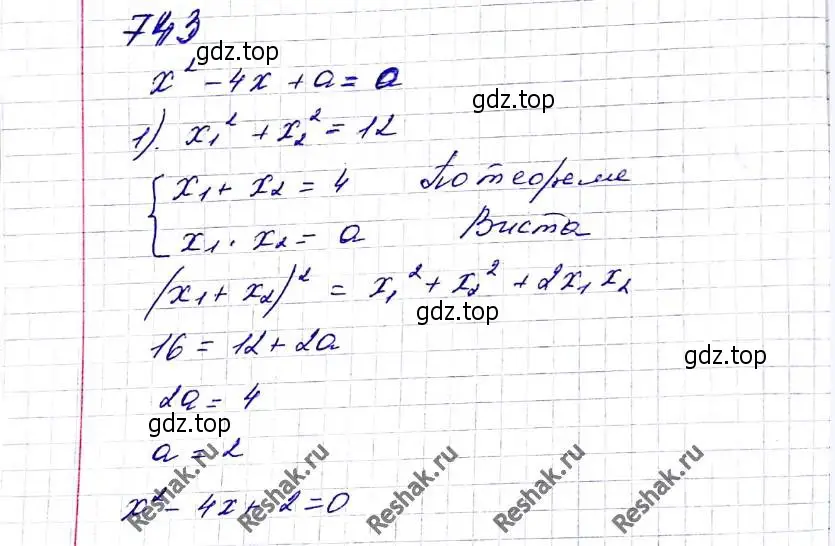 743
gdz.top
x² - 4x + a = 0
gdz.top
1). x₁² + x₂² = 12
{ x₁ + x₂ = 4 По теореме
x₁ · x₂ = a Виета
(x₁ + x₂)² = x₁² + x₂² + 2x₁ x₂
gdz.top
16 = 12 + 2a
gdz.top
2a = 4
gdz.top
a = 2
x² - 4x + 2 = 0
Reshak.ru Reshak.ru Reshak.ru Reshak.ru Reshak.ru